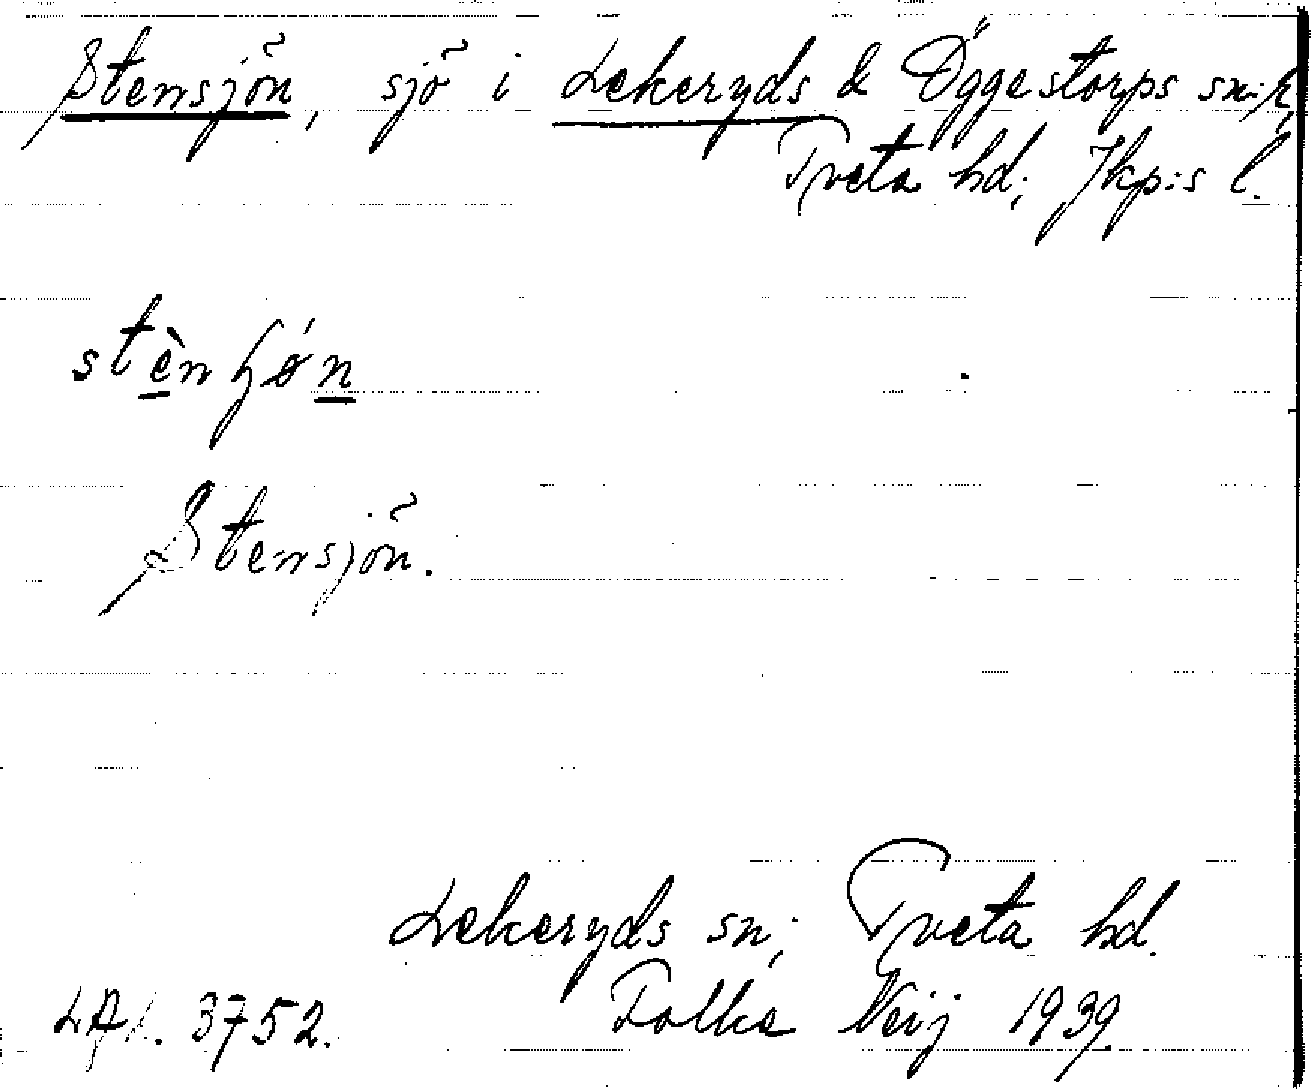 Stensjön, sjö i Lekeryds & Öggestorps sn:r,
Tveta hd; Jkp:s l.
Stensjön.
Lekeryds sn; Tveta hd.
3752. Folke Neij 1939